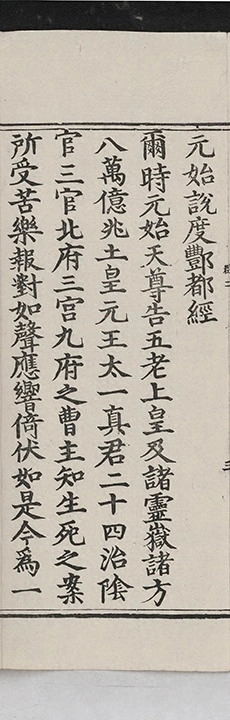 元始說度酆都經
爾時元始天尊告五老上皇及諸靈嶽諸方
八萬億兆土皇元王太一真君二十四治陰
官三官北府三宫九府之曹主知生死之案
所受苦樂報對如聲應響倚伏如是今爲一